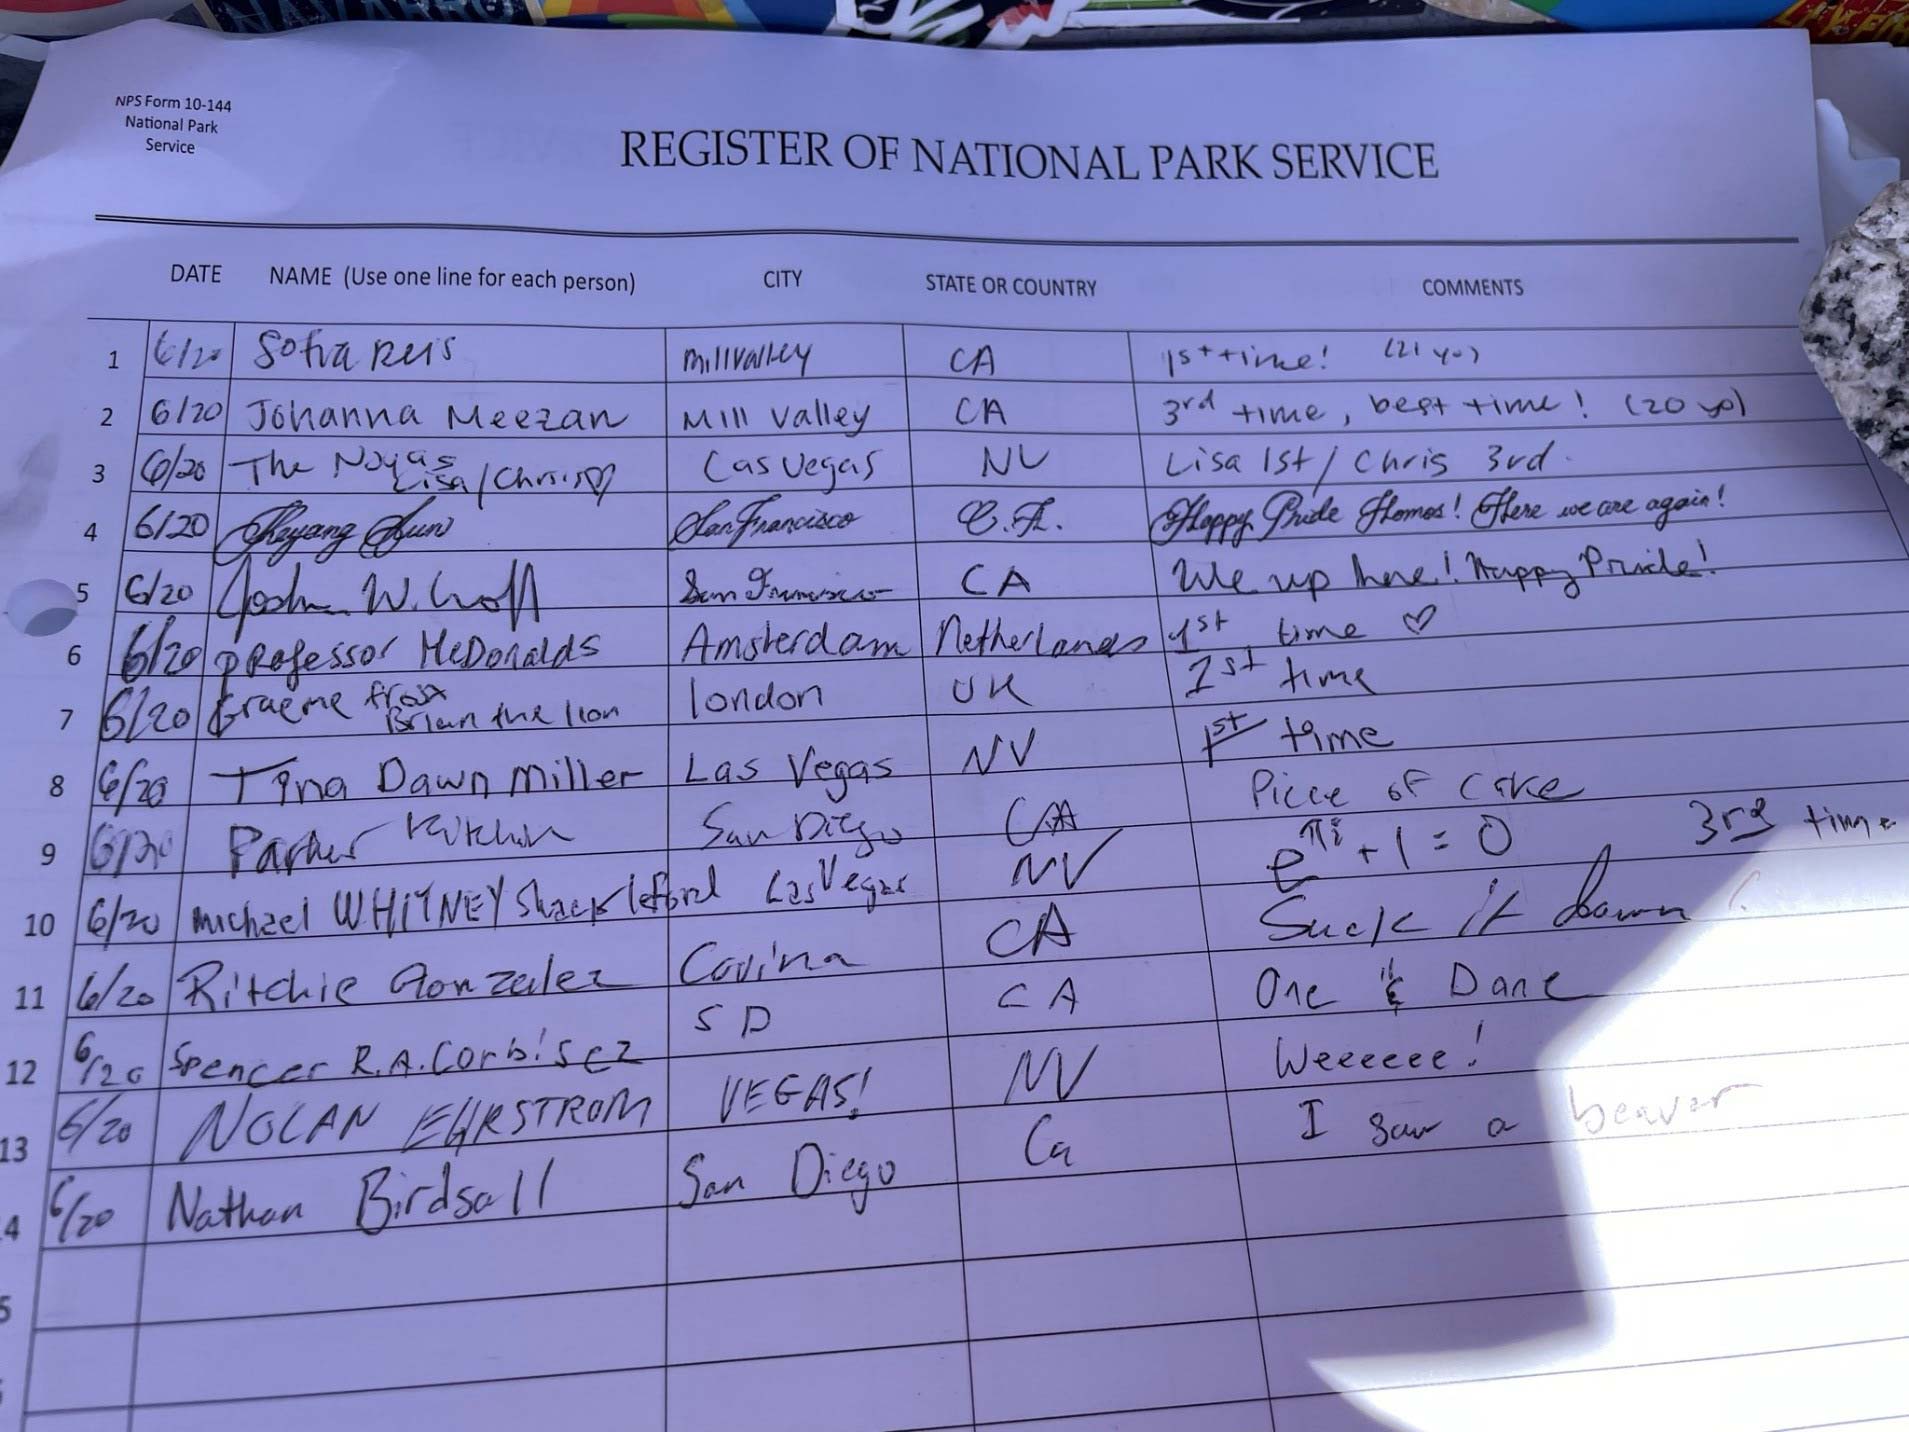 NAVARRO
NPS Form 10-144
National Park
Service
REGISTER OF NATIONAL PARK SERVICE
DATE NAME (Use one line for each person) CITY STATE OR COUNTRY COMMENTS
1 6/20 Sofia Reis Mill Valley CA 1st time! (21 yo)
2 6/20 Johanna Meezan Mill Valley CA 3rd time, best time! (20 yo)
3 6/20 The Noyas Lisa/Chris♡ Las Vegas NV Lisa 1st/Chris 3rd.
4 6/20 San Francisco C.A. Happy Pride Homos! Here we are again!
5 6/20 W. San Francisco CA We up here! Happy Pride!
6 6/20 Professor McDonalds Amsterdam Netherlands 1st time ♡
7 6/20 Graeme Brian the lion london UK 1st time
8 6/20 Tina Dawn Miller Las Vegas NV 1st time
9 6/20 Parker San Diego CA Piece of cake
10 6/20 Michael WHITNEY Shackleford Las Vegas NV e^πi + 1 = 0 3rd time
11 6/20 Ritchie Gonzalez Covina CA Suck it
12 6/20 Spencer R.A. Corbisez SD CA One & Dane
13 6/20 NOLAN EHRSTROM VEGAS! NV Weeeeee!
4 6/20 Nathan Birdsall San Diego Ca I saw a beaver
5